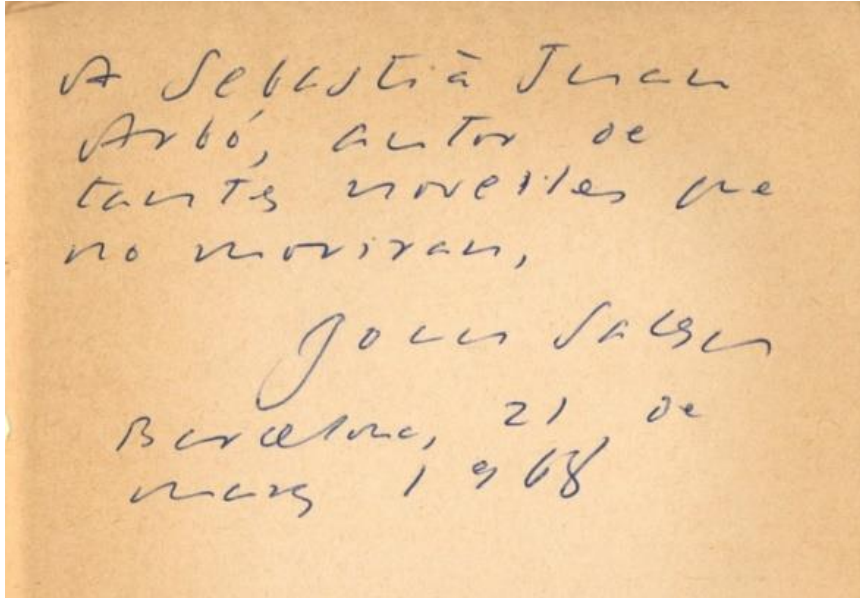 A Sebastià Juan
Arbó, autor de
tantes novel·les que
no moriran,
Joan Sales
Barcelona, 21, de
març 1968